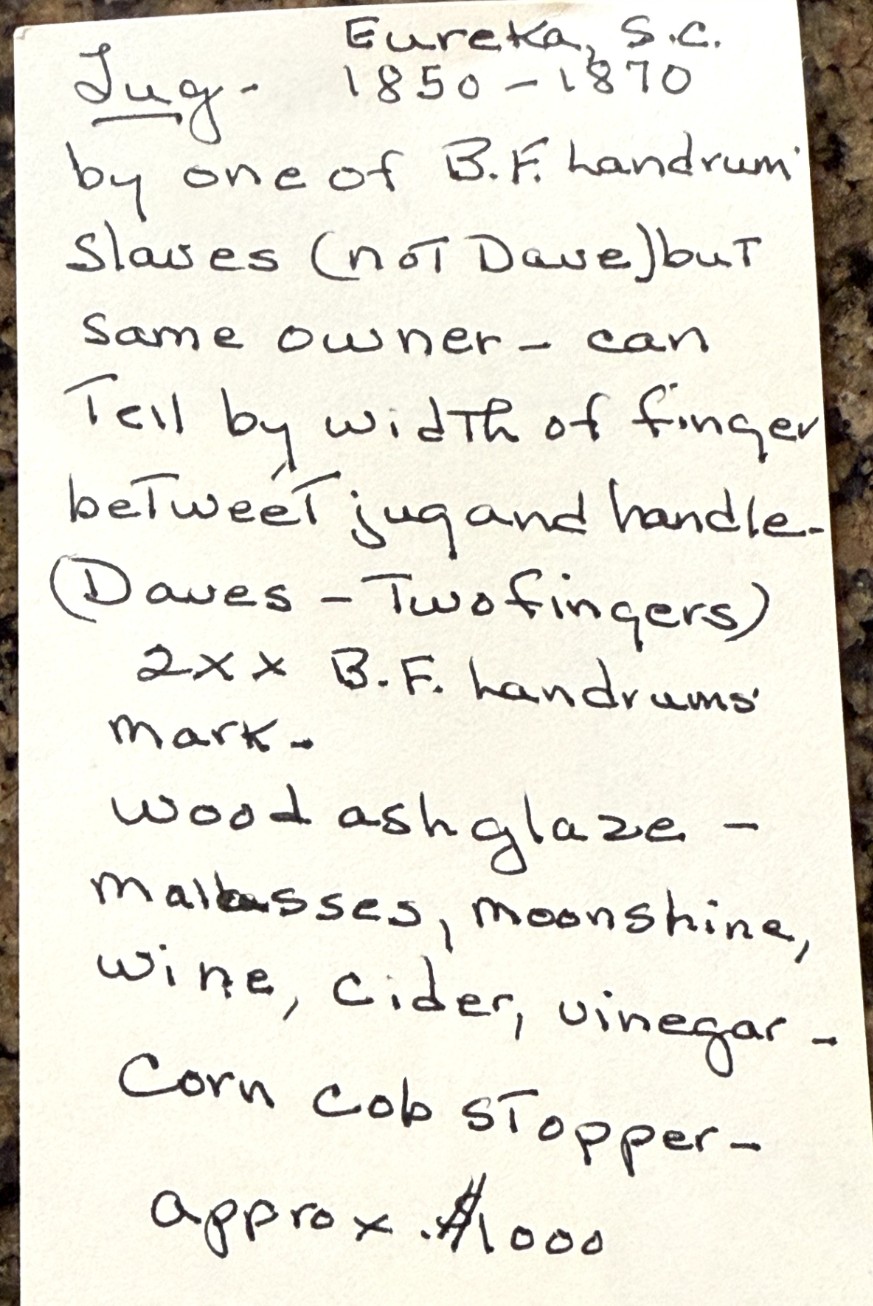 Eureka, S.C.
Jug- 1850-1870
by one of B.F. Landrum'
Slaves (not Dave) but
same owner- can
Tell by width of finger
betweet jug and handle-
(Daves - Two fingers)
2xx B.F. Landrums'
mark-
wood ash glaze -
malasses, moonshine,
wine, cider, vinegar-
Corn cob stopper-
approx. $1000